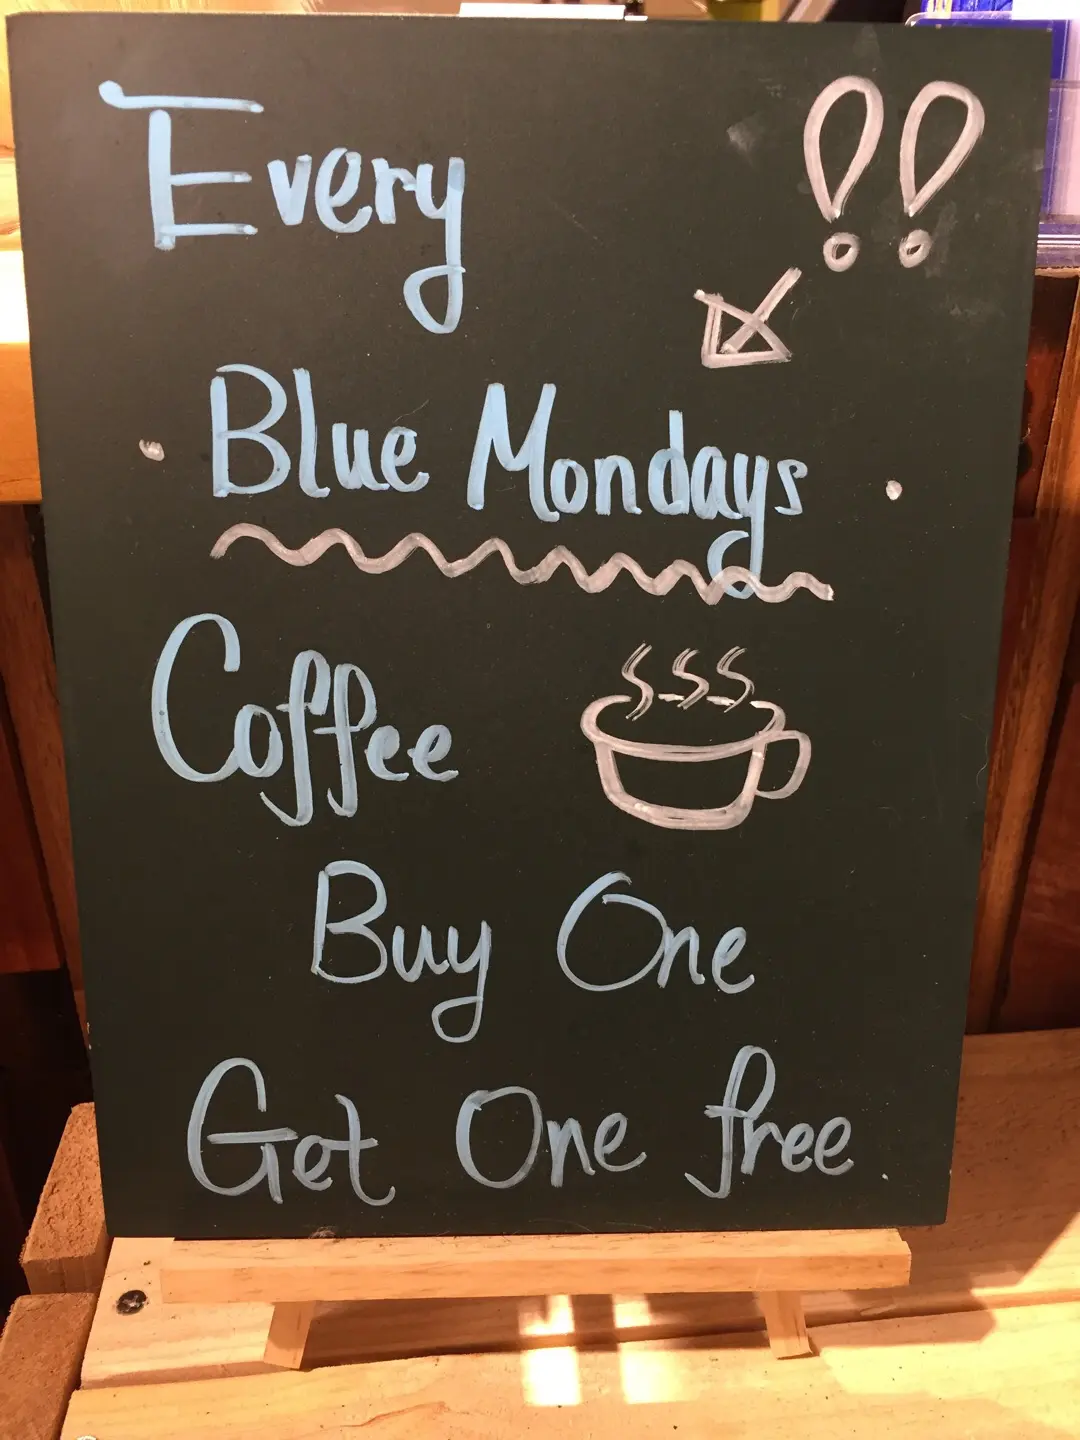 Every !!
Blue Mondays
Coffee
Buy One
Get One free.